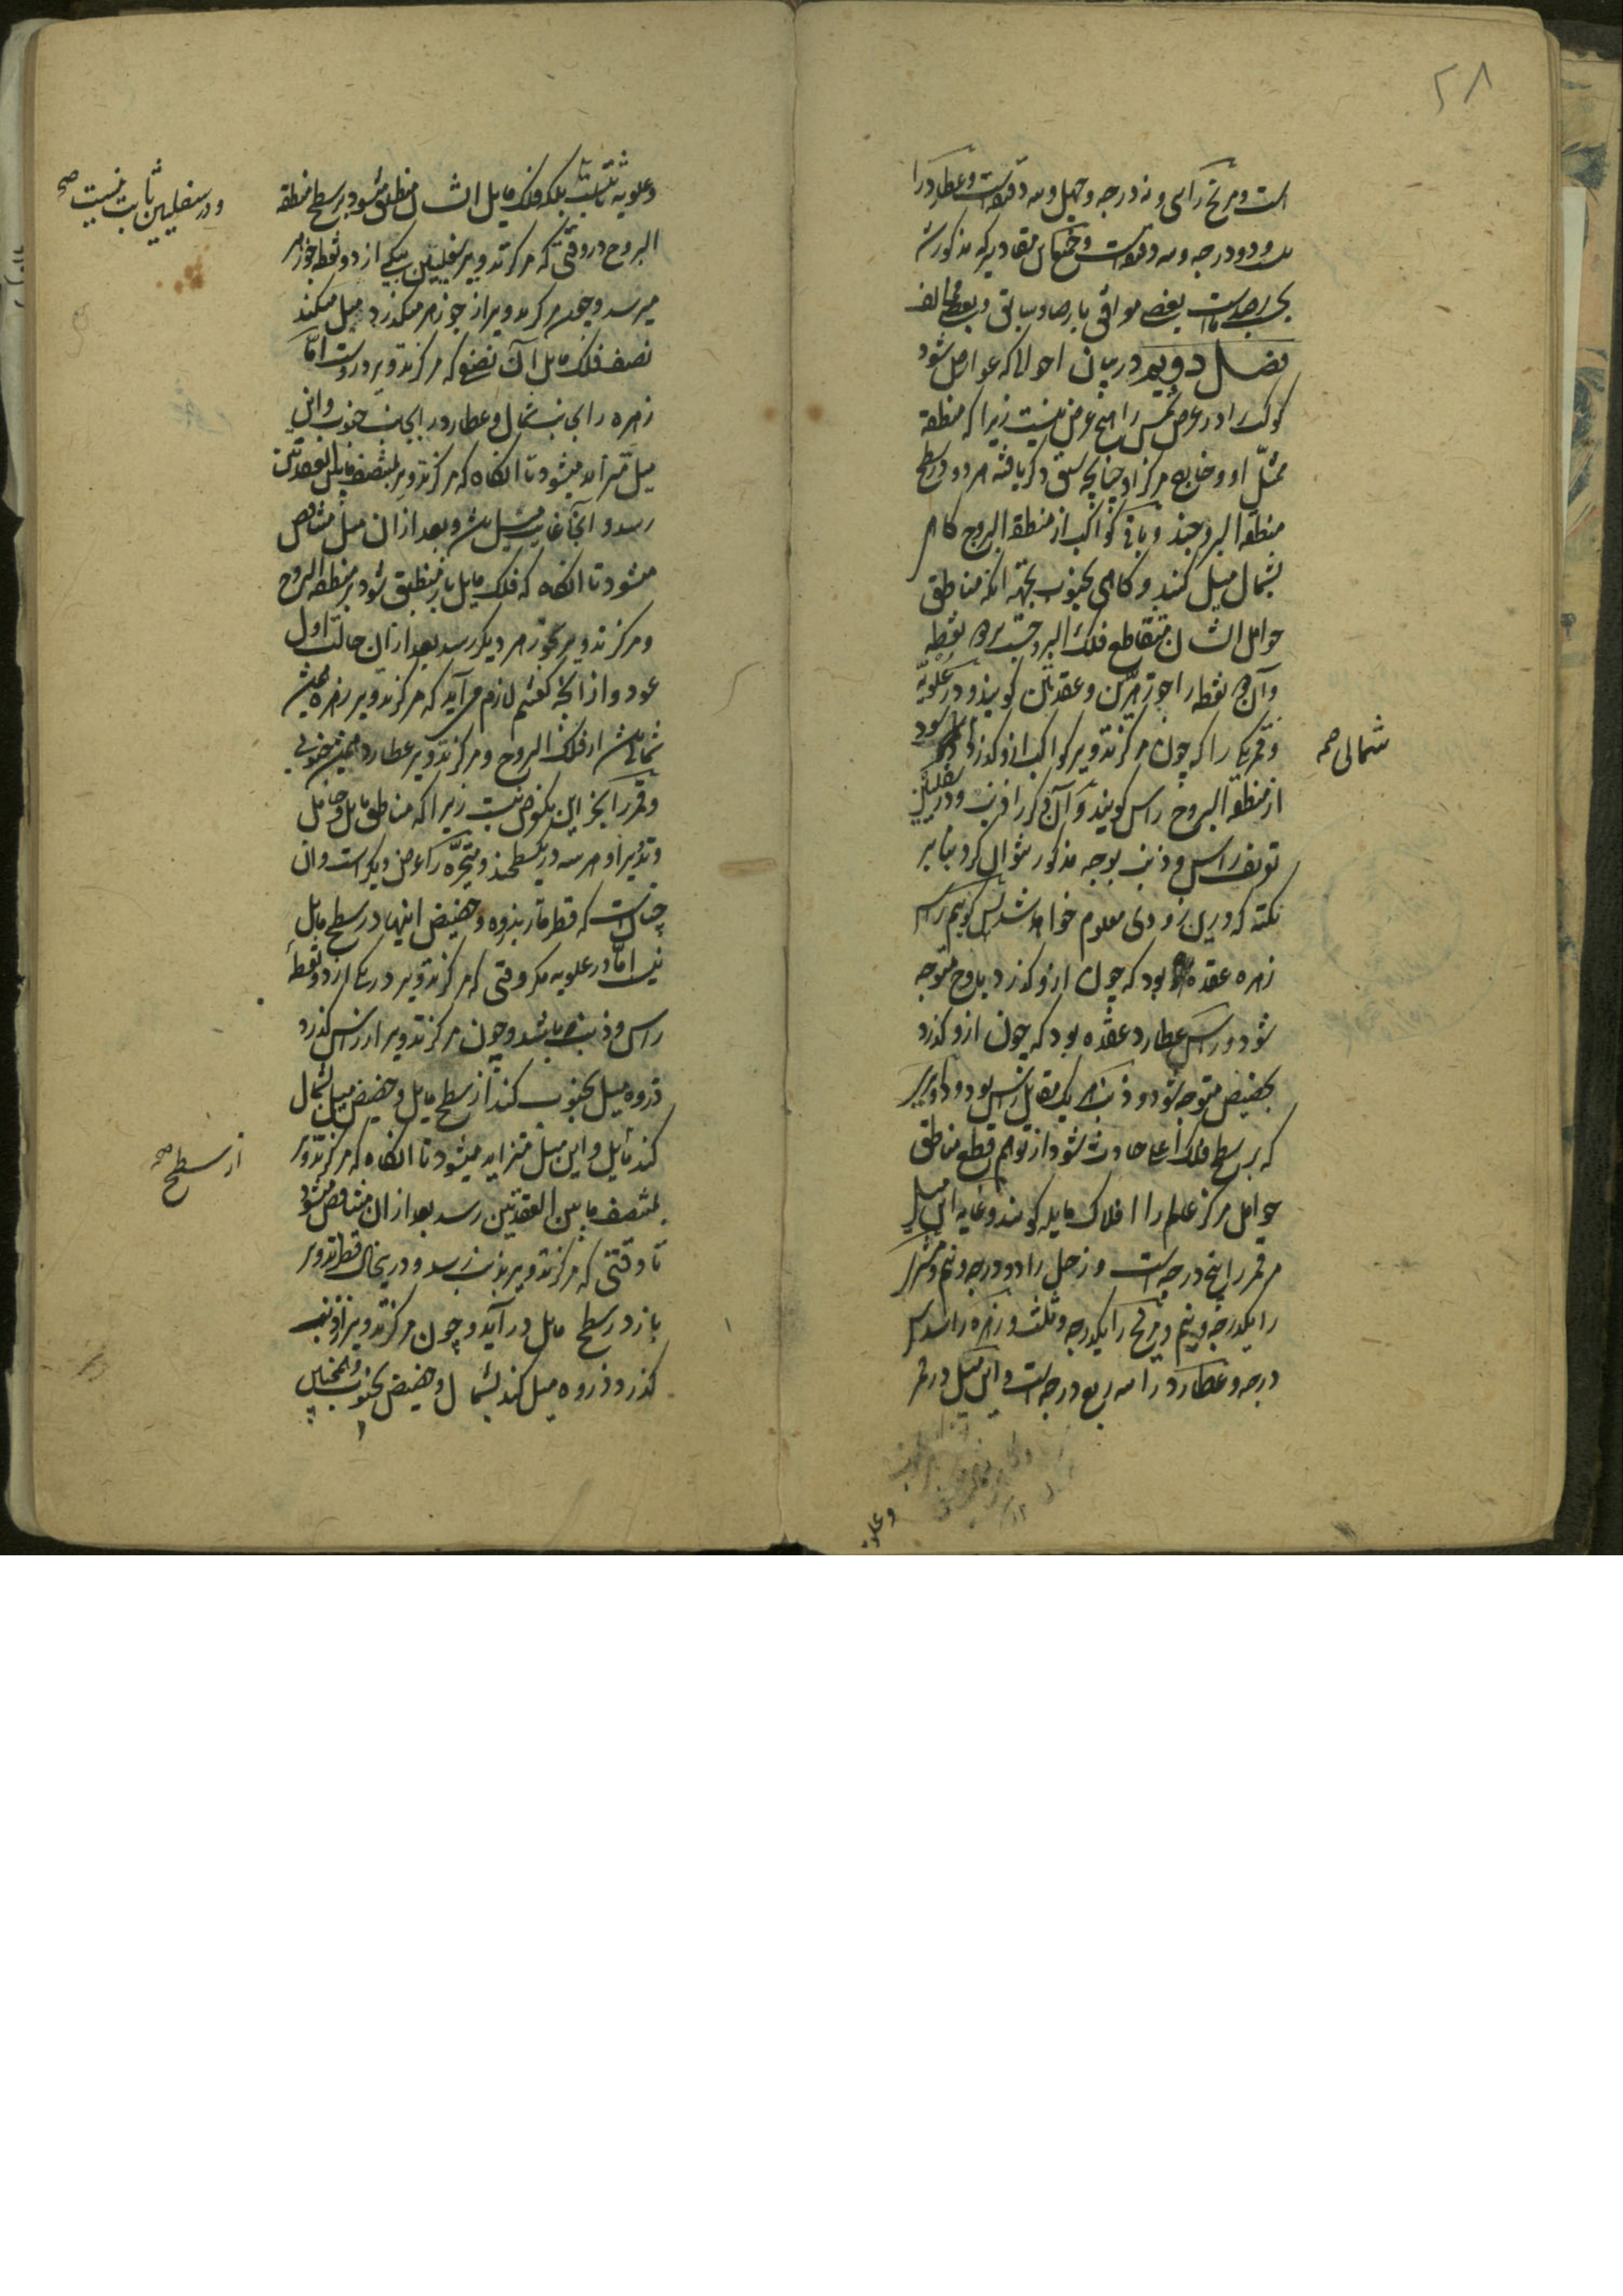 ۲۸
است و مریخ را سی و نه درجه و چهل و سه دقیقه است و عطارد را
بیست و دو درجه و سه دقیقه است و جمیع این مقادیر که مذکور شد
بعضی موافق با رصاد سابق و بعضی مخالف
فصل دویم در بیان احوالی که عوارض شود
کوکب را در عرض شمس را هیچ عرض نیست زیرا که منطقه
ممثل او و خارج مرکز او چنانچه سبق ذکر یافته هر دو در سطح
منطقة البروجند و باقی کواکب از منطقة البروج گاه
بشمال میل کنند و گاهی بجنوب بجهة آنکه مناطق
حوامل ایشان متقاطع فلک البروجست بر دو نقطه
و آن دو نقطه را جوزهرین و عقدتین گویند و در علویه
و قمر یکی را که چون مرکز تدویر کواکب ازو گذرد شود
شمالی صح
از منطقة البروج راس گویند و آن دیگر را ذنب و در سفلیین
تعریف راس و ذنب بوجه مذکور نتوان کرد بنابر
نکته که درین زودی معلوم خواهد شد پس گوییم راس
زهره عقده بود که چون ازو گذرد باوج متوجه
شود و راس عطارد عقده بود که چون ازو گذرد
بحضیض متوجه شود و ذنب هر یک مقابل راس بود و دوایر
که بر سطح فلک اعلی حادث شود از توهم قطع مناطق
حوامل مرکز عالم را افلاک مایله گویند و غایه این میل
مر قمر را پنج درجه است و زحل را دو درجه و نیم و مشتری
را یکدرجه و نیم و مریخ را یکدرجه و ثلث و زهره را سدس
درجه و عطارد را سه ربع درجه است و این میل در قمر
وعلویه
و علویه ثابتست بلکه فلک مایل ایشان منطبق میشود بر سطح منطقة
و در سفلیین ثابت نیست صح
البروج در وقتی که مرکز تدویر سفلیین بیکی از دو نقطه جوزهر
میرسد و چون مرکز تدویر از جوزهر میگذرد میل میکند
نصف فلک مایل آن نصفی که مرکز تدویر دروست اما
زهره را بجانب شمال و عطارد را بجانب جنوب و این
میل متزاید میشود تا آنگاه که مرکز تدویر بمنتصف مابین العقدتین
رسد و آنجا غایت میلش و بعد از آن میل متناقص
میشود تا آنگاه که فلک مایل باز منطبق شود بر منطقة البروج
و مرکز تدویر بجوزهر دیگر رسد بعد از آن حالت اول
عود و از آنچه گفتیم لازم می آید که مرکز تدویر زهره همیشه
شمالی باشد از فلک البروج و مرکز تدویر عطارد همیشه جنوبی
و قمر را بجز این یک عرض نیست زیرا که مناطق مایل و حامل
و تدویر او هر سه در یک سطحند و متحیره را عرض دیگر است و آن
چنانست که قطر مار بذروه و حضیض اینها در سطح مایل
نیست اما در علویه مگر وقتی که مرکز تدویر در یکی از دو نقطه
راس و ذنب باشد و چون مرکز تدویر از راس گذرد
ذروه میل بجنوب کند از سطح مایل و حضیض میل بشمال
کند مایل و این میل متزاید میشود تا آنگاه که مرکز تدویر
از سطح صح
بمنتصف مابین العقدتین رسد بعد از آن متناقص میشود
تا وقتی که مرکز تدویر بذنب رسد و درین حال قطر تدویر
باز در سطح مایل در آید و چون مرکز تدویر از ذنب
گذرد ذروه میل کند بشمال و حضیض بجنوب و همچنین